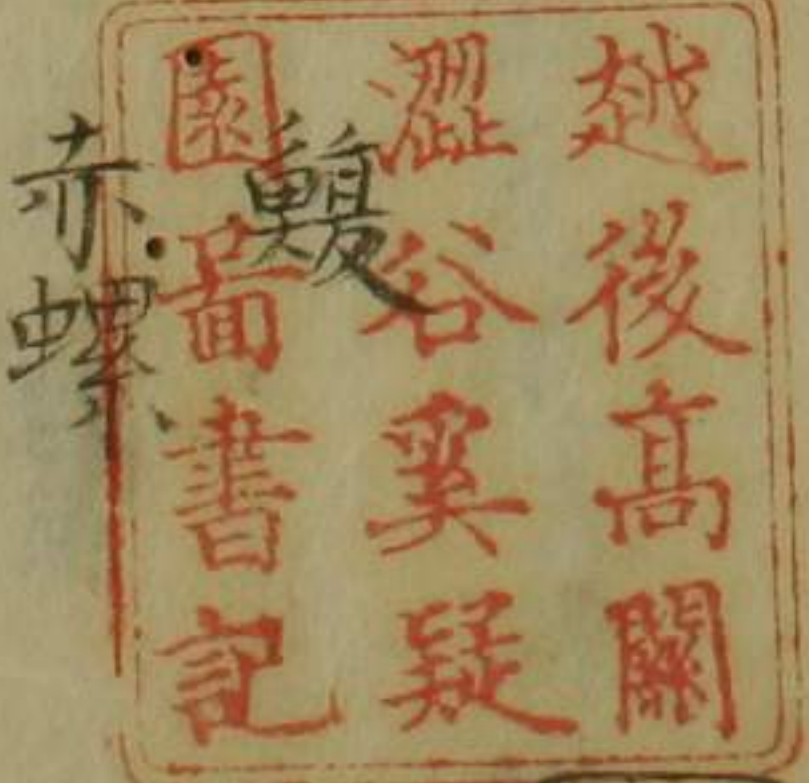 越後高關
澀谷奚疑
園啚書記
鰒
赤螺